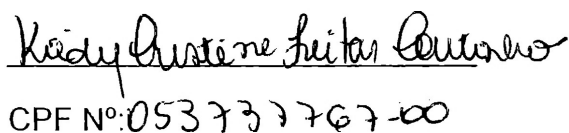 Keidy Cristine Freitas Coutinho
CPF Nº: 053737767-00